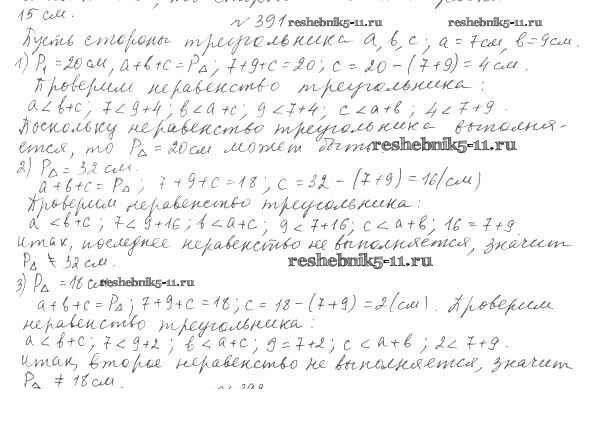 15 см.
№ 391 reshebnik5-11.ru reshebnik5-11.ru
Пусть стороны треугольника a, b, c; a = 7см, b = 9см.
1) P₁ = 20см, a+b+c = P△; 7+9+c = 20; c = 20 – (7+9) = 4см.
Проверим неравенство треугольника:
a < b+c; 7 < 9+4; b < a+c; 9 < 7+4; c < a+b; 4 < 7+9.
Поскольку неравенство треугольника выполня-
ется, то P△ = 20см может быть reshebnik5-11.ru
2) P△ = 32см.
a+b+c = P△; 7+9+c = 18; c = 32 – (7+9) = 16(см)
Проверим неравенство треугольника:
a < b+c; 7 < 9+16; b < a+c; 9 < 7+16; c < a+b; 16 = 7+9
Итак, последнее неравенство не выполняется, значит
P△ ≠ 32см. reshebnik5-11.ru
3) P△ = 18см reshebnik5-11.ru
a+b+c = P△; 7+9+c = 18; c = 18 – (7+9) = 2(см). Проверим
неравенство треугольника:
a < b+c; 7 < 9+2; b < a+c; 9 = 7+2; c < a+b; 2 < 7+9.
Итак, второе неравенство не выполняется, значит
P△ ≠ 18см.